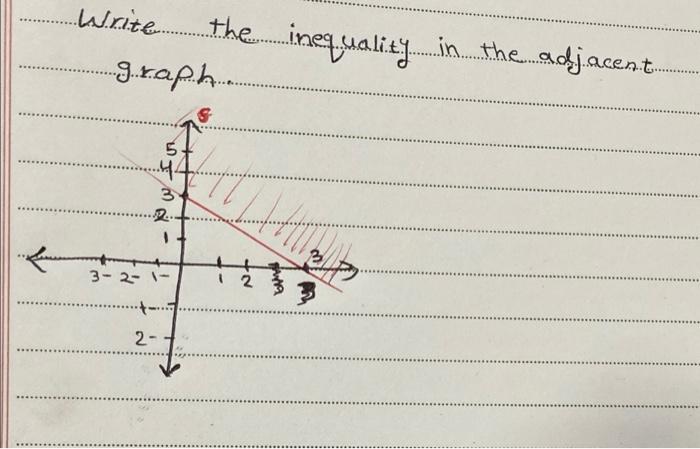 Write the inequality in the adjacent
graph.
5
4
3
2
1
3
3- 2- 1- 1 2
1-
2-